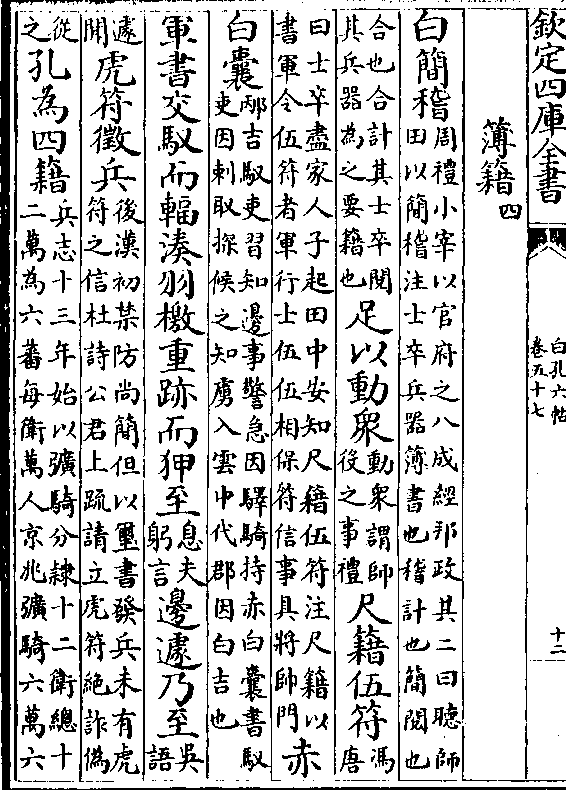 欽定四庫全書
白孔六帖
卷五十七
十二
簿籍四
白簡稽周禮小宰以官府之八成經邦政其二曰聽師
田以簡稽注士卒兵器簿書也稽計也簡閱也
合也合計其士卒閱
其兵器為之要籍也足以動衆動衆謂師
後之事禮尺籍伍符馮
唐
曰士卒盡家人子起田中安知尺籍伍符注尺籍以
書軍令伍符者軍行士伍伍相保符信事具將帥門赤
白囊邴吉馭吏習知邊事警急因驛騎持赤白囊書馭
吏因刺取探候之知虜入雲中代郡因白吉也
軍書交馭而輻湊羽檄重跡而狎至息夫
躬言邊遽乃至吳
語
遽
閒虎符徵兵後漢初禁防尚簡但以璽書發兵未有虎
符之信杜詩公君上疏請立虎符絶詐偽
從
之孔為四籍兵志十三年始以彍騎分隸十二衛總十
二萬為六蕃每衛萬人京兆彍騎六萬六